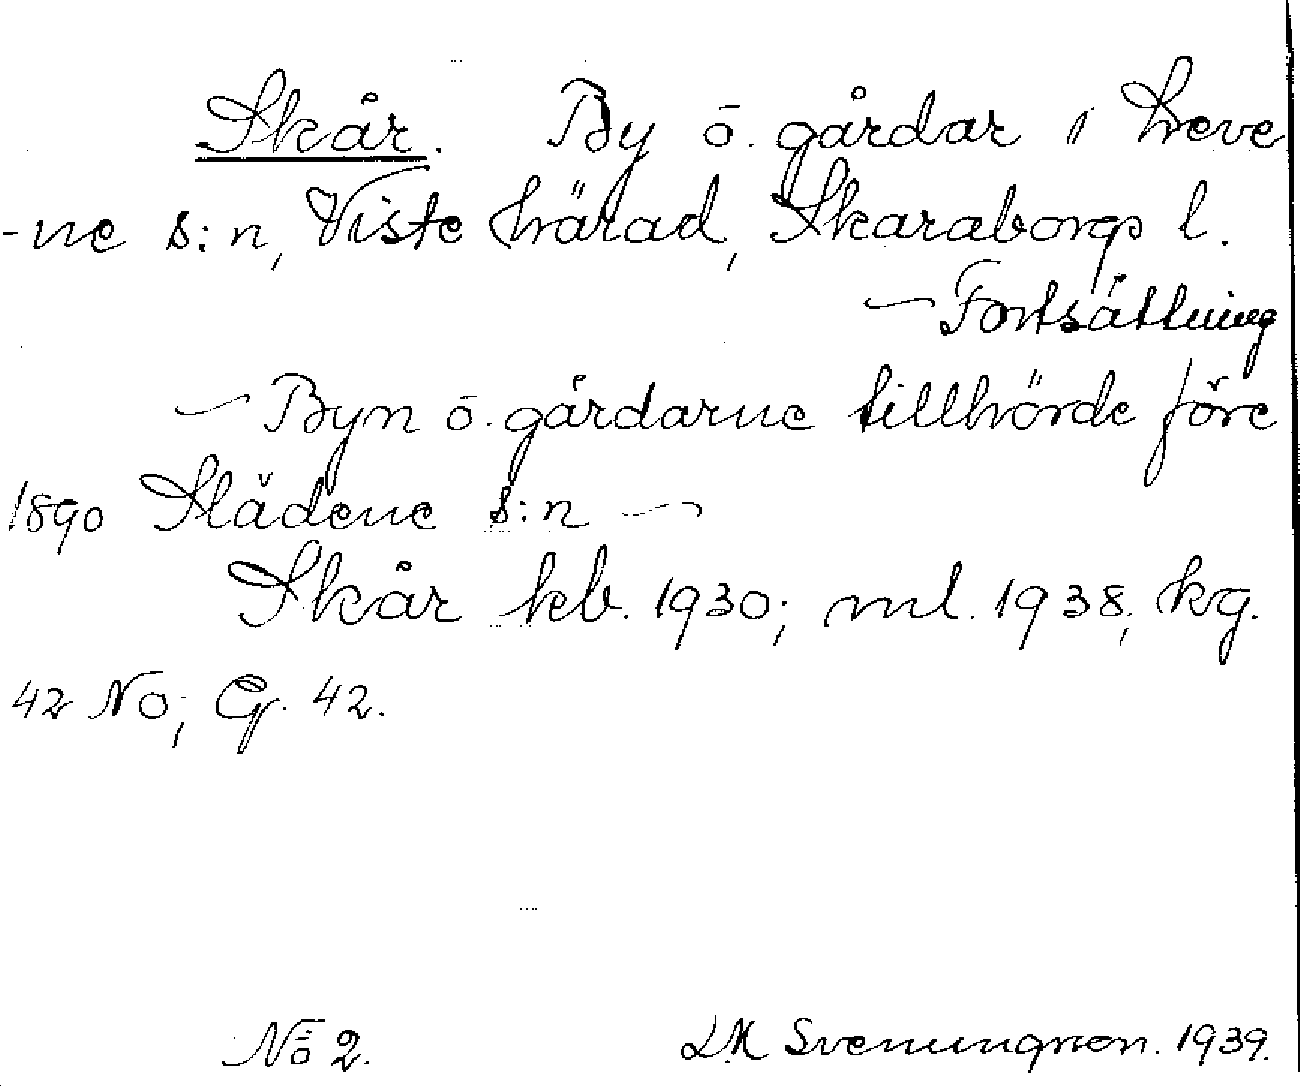 Skår. By o. gårdar i Leve
-ne s:n, Viste härad, Skaraborgs l.
— Fortsättning
— Byn o. gårdarne tillhörde före
1890 Slädene s:n —
Skår kb. 1930; ml. 1938; kg.
42 NO; G. 42.
No 2. LM Svenungsson. 1939.